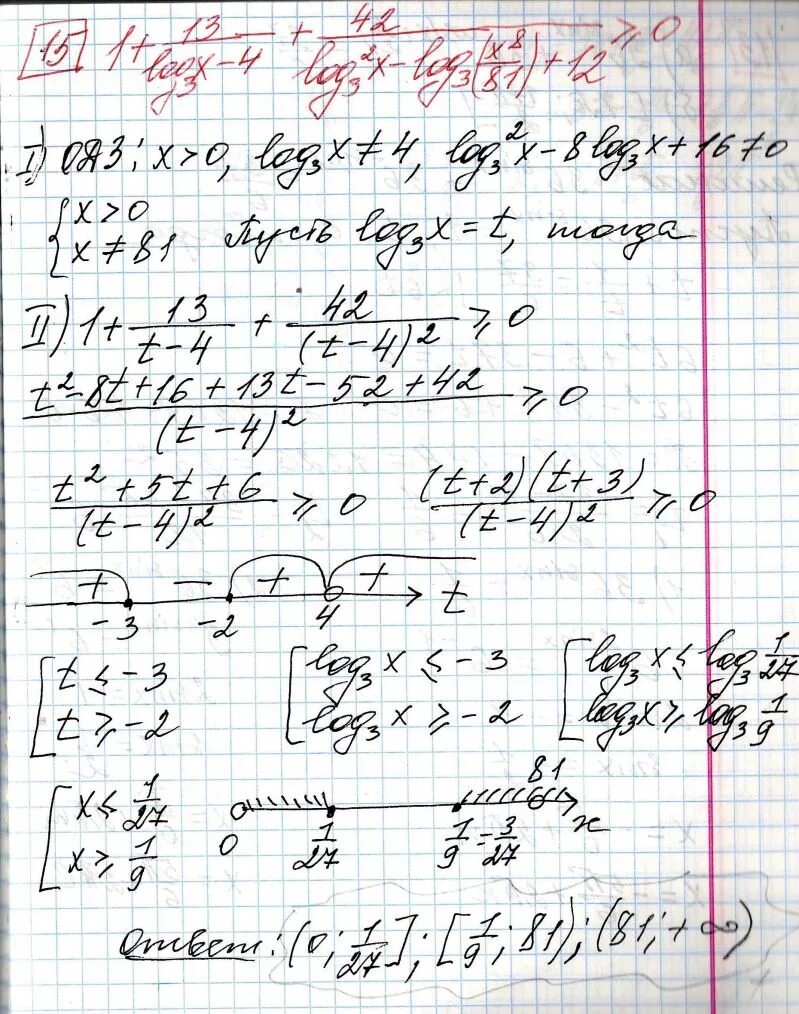 15 1 + 13/(log₃x − 4) + 42/(log₃²x − log₃(x⁸/81) + 12) ⩾ 0
I) ОДЗ: x > 0, log₃x ≠ 4, log₃²x − 8log₃x + 16 ≠ 0
{ x > 0
x ≠ 81 Пусть log₃x = t, тогда
II) 1 + 13/(t − 4) + 42/(t − 4)² ⩾ 0
(t² − 8t + 16 + 13t − 52 + 42)/(t − 4)² ⩾ 0
(t² + 5t + 6)/(t − 4)² ⩾ 0 (t + 2)(t + 3)/(t − 4)² ⩾ 0
+ − + +
−3 −2 4 t
[ t ⩽ −3 [ log₃x ⩽ −3 [ log₃x ⩽ log₃ 1/27
t ⩾ −2 log₃x ⩾ −2 log₃x ⩾ log₃ 1/9
[ x ⩽ 1/27 81
x ⩾ 1/9 0 1/27 1/9 = 3/27 x
Ответ: (0; 1/27]; [1/9; 81); (81; +∞)